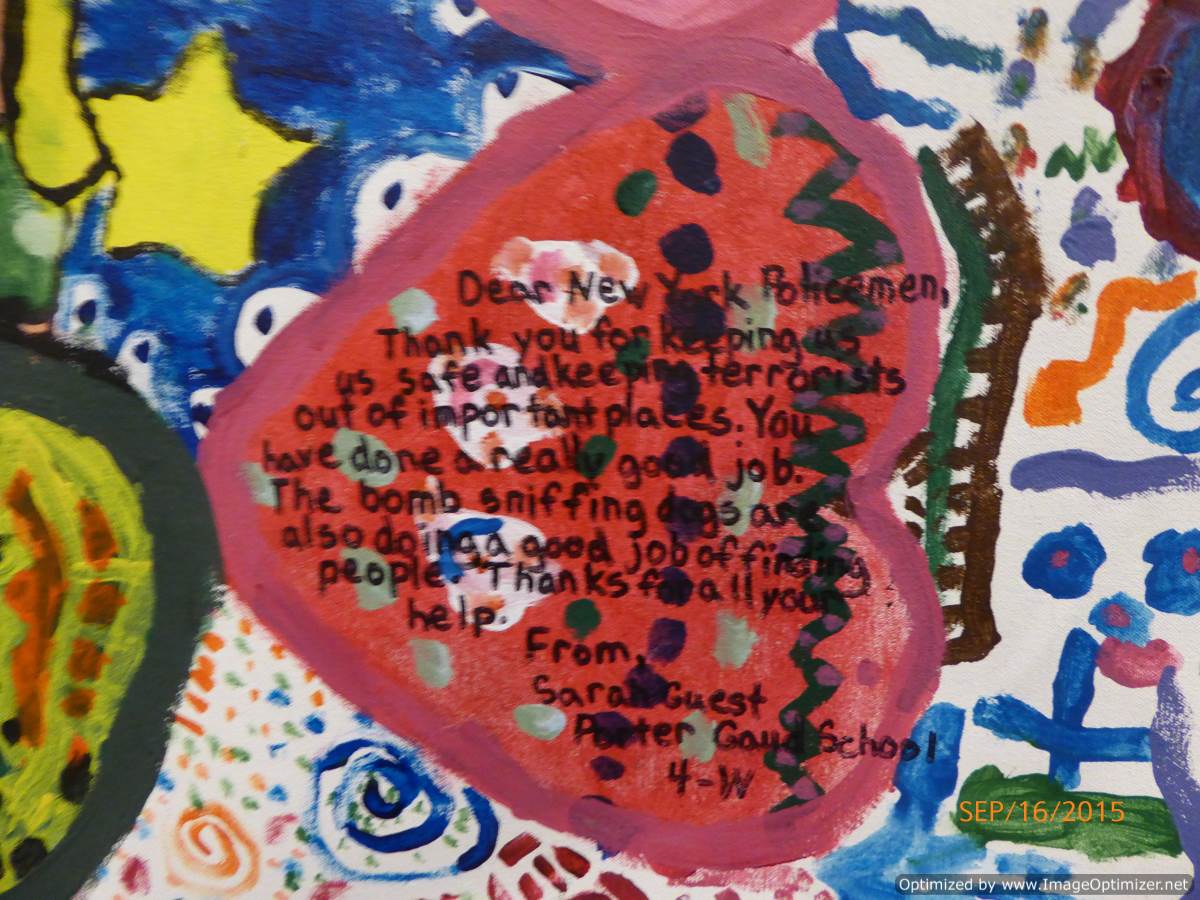 Dear New York Policemen,
Thank you for keeping us
us safe and keeping terrorists
out of important places. You
have done a really good job.
The bomb sniffing dogs are
also doing a good job of finding
people. Thanks for all your
help.
From,
Sarah Guest
Porter Gaud School
4-W
SEP/16/2015
Optimized by www.ImageOptimizer.net